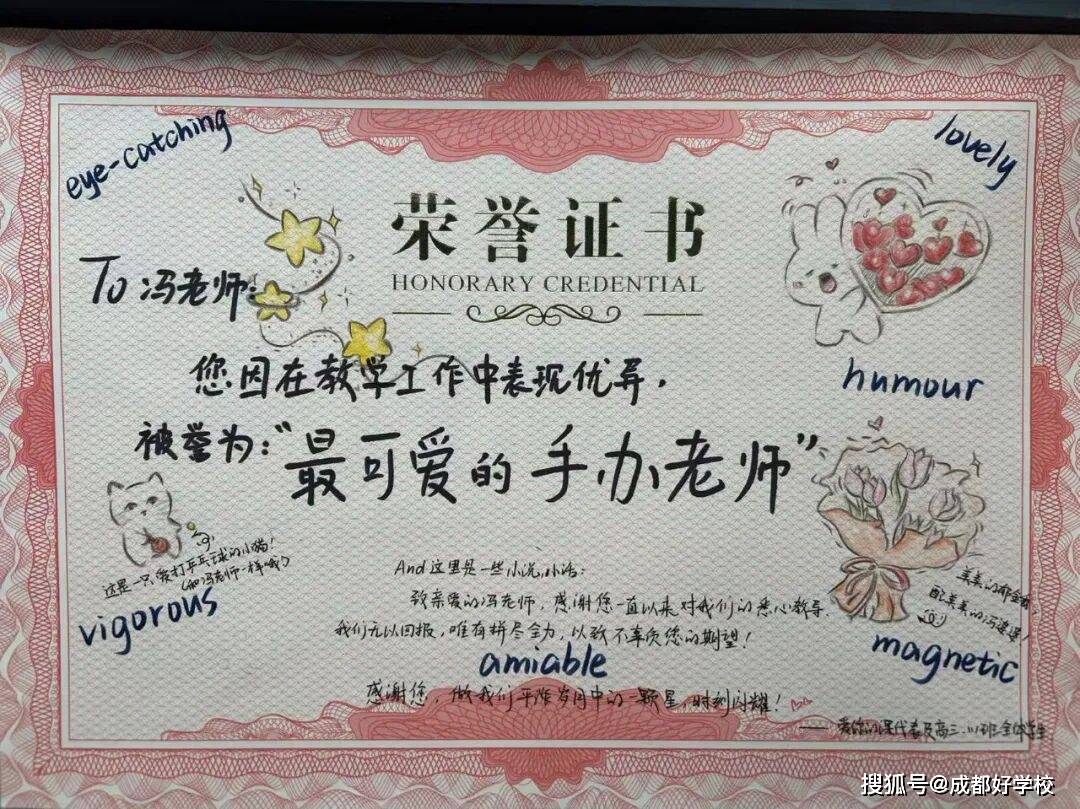 eye-catching
lovely
荣誉证书
HONORARY CREDENTIAL
To 冯老师:
您因在教学工作中表现优异,
humour
被誉为:“最可爱的手办老师”
这是一只爱打乒乓球的小猫!
(和冯老师一样哦)
vigorous
And 这里是一些小说小话:
致亲爱的冯老师,感谢您一直以来对我们的悉心教导.
我们无以回报,唯有拼尽全力,以致不辜负您的期望!
美美的郁金香,
配美美的冯婆婆!
amiable
magnetic
感谢您,做我们平淮岁月中的一颗星,时刻闪耀!
——爱您的课代表及高三.11班全体学生
搜狐号@成都好学校